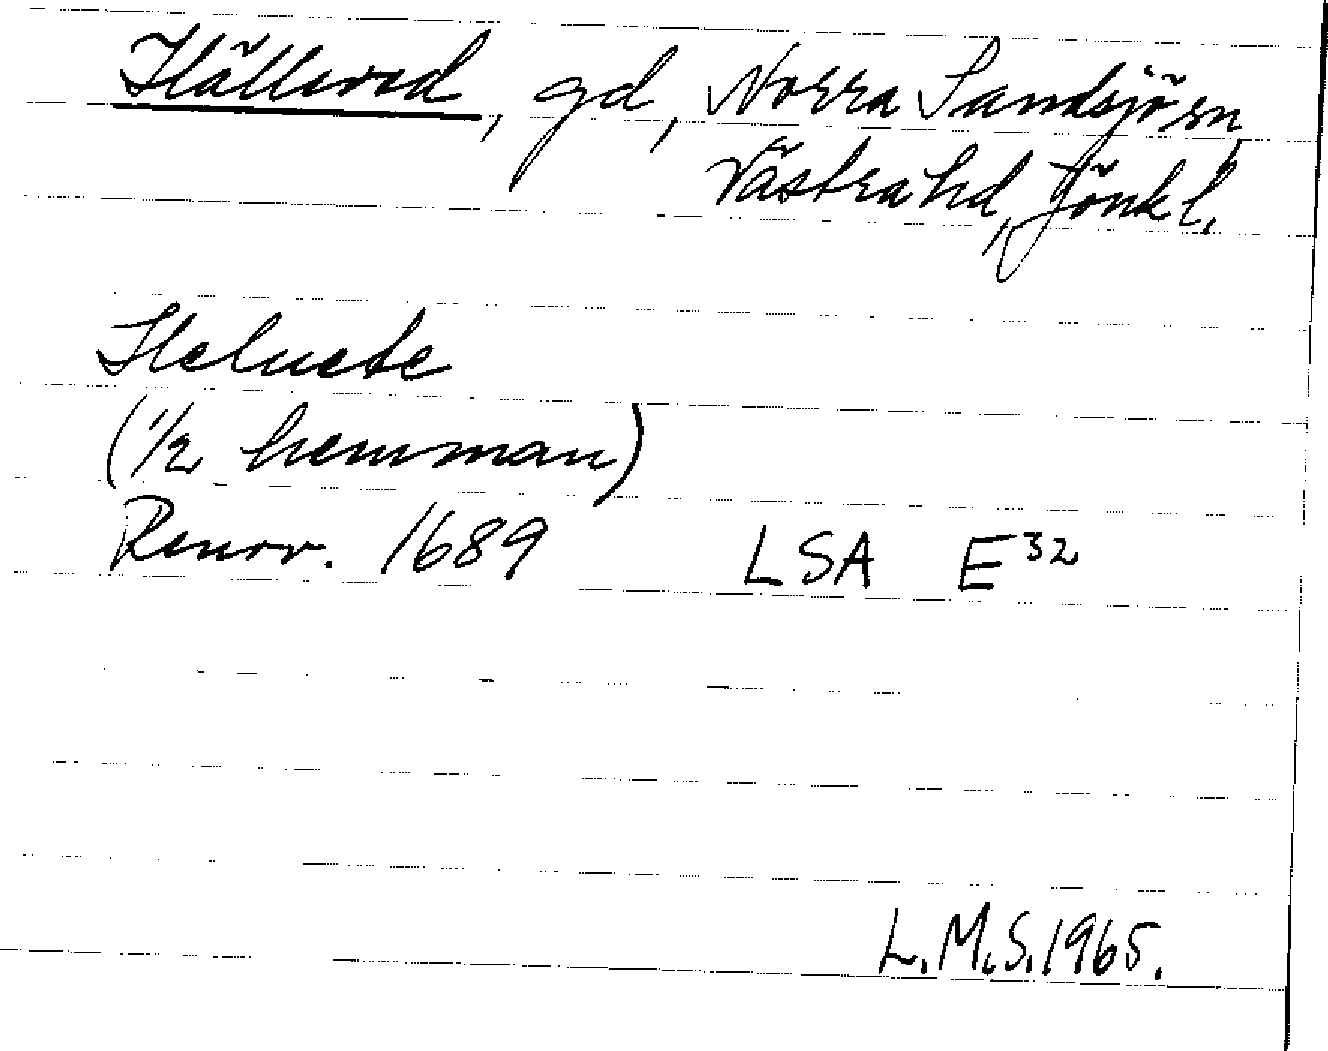 Hällered, gd, Norra Sandsjö sn
Västra hd, Jönk l.
Heluete
(1/2 hemman)
Renov. 1689 LSA E32
L.M.S. 1965.